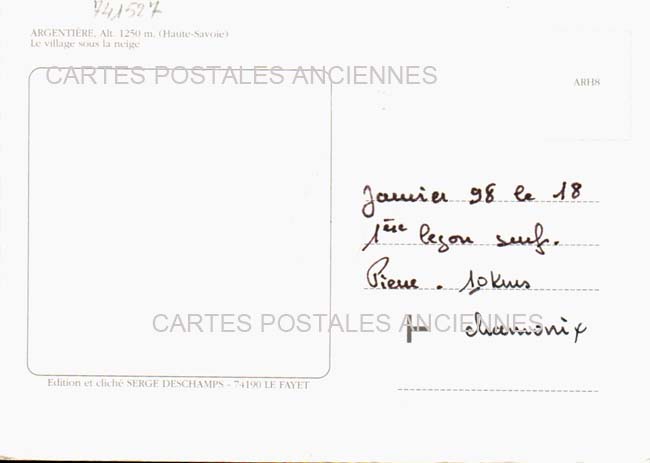 741527
ARGENTIÈRE, Alt. 1250 m. (Haute-Savoie)
Le village sous la neige
CARTES POSTALES ANCIENNES
ARH8
Janvier 98 le 18
1ère leçon surf.
Pierre. 10 Kms
chamonix
CARTES POSTALES ANCIENNES
Edition et cliché SERGE DESCHAMPS - 74190 LE FAYET